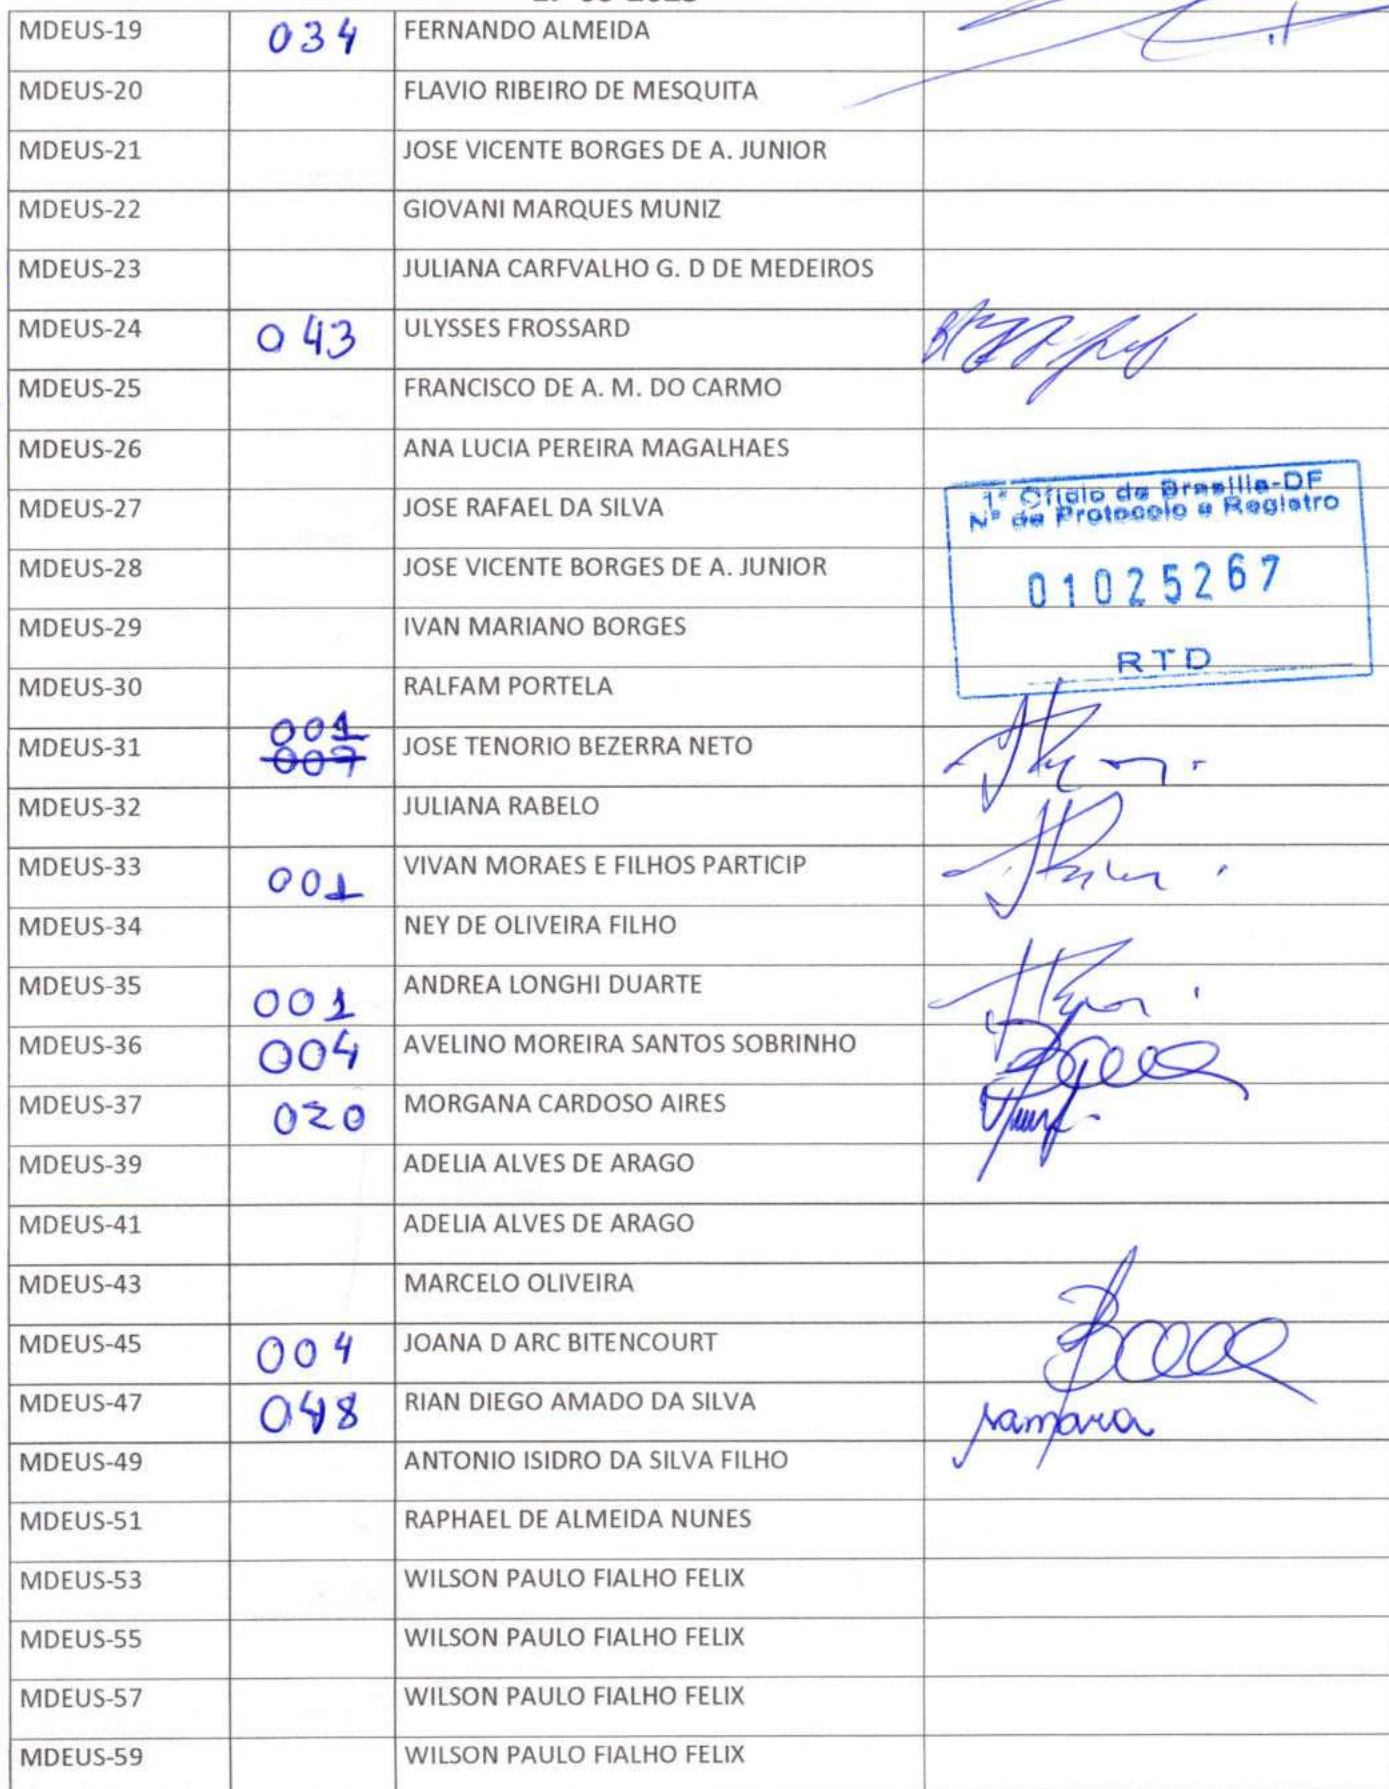 MDEUS-19 034 FERNANDO ALMEIDA
MDEUS-20 FLAVIO RIBEIRO DE MESQUITA
MDEUS-21 JOSE VICENTE BORGES DE A. JUNIOR
MDEUS-22 GIOVANI MARQUES MUNIZ
MDEUS-23 JULIANA CARFVALHO G. D DE MEDEIROS
MDEUS-24 043 ULYSSES FROSSARD
MDEUS-25 FRANCISCO DE A. M. DO CARMO
MDEUS-26 ANA LUCIA PEREIRA MAGALHAES
1º Ofício de Brasília-DF
MDEUS-27 JOSE RAFAEL DA SILVA
Nº de Protocolo e Registro
MDEUS-28 JOSE VICENTE BORGES DE A. JUNIOR
01025267
MDEUS-29 IVAN MARIANO BORGES
RTD
MDEUS-30 RALFAM PORTELA
001
MDEUS-31 007 JOSE TENORIO BEZERRA NETO
MDEUS-32 JULIANA RABELO
MDEUS-33 001 VIVAN MORAES E FILHOS PARTICIP
MDEUS-34 NEY DE OLIVEIRA FILHO
MDEUS-35 001 ANDREA LONGHI DUARTE
MDEUS-36 004 AVELINO MOREIRA SANTOS SOBRINHO
MDEUS-37 020 MORGANA CARDOSO AIRES
MDEUS-39 ADELIA ALVES DE ARAGO
MDEUS-41 ADELIA ALVES DE ARAGO
MDEUS-43 MARCELO OLIVEIRA
MDEUS-45 004 JOANA D ARC BITENCOURT
MDEUS-47 048 RIAN DIEGO AMADO DA SILVA samara
MDEUS-49 ANTONIO ISIDRO DA SILVA FILHO
MDEUS-51 RAPHAEL DE ALMEIDA NUNES
MDEUS-53 WILSON PAULO FIALHO FELIX
MDEUS-55 WILSON PAULO FIALHO FELIX
MDEUS-57 WILSON PAULO FIALHO FELIX
MDEUS-59 WILSON PAULO FIALHO FELIX